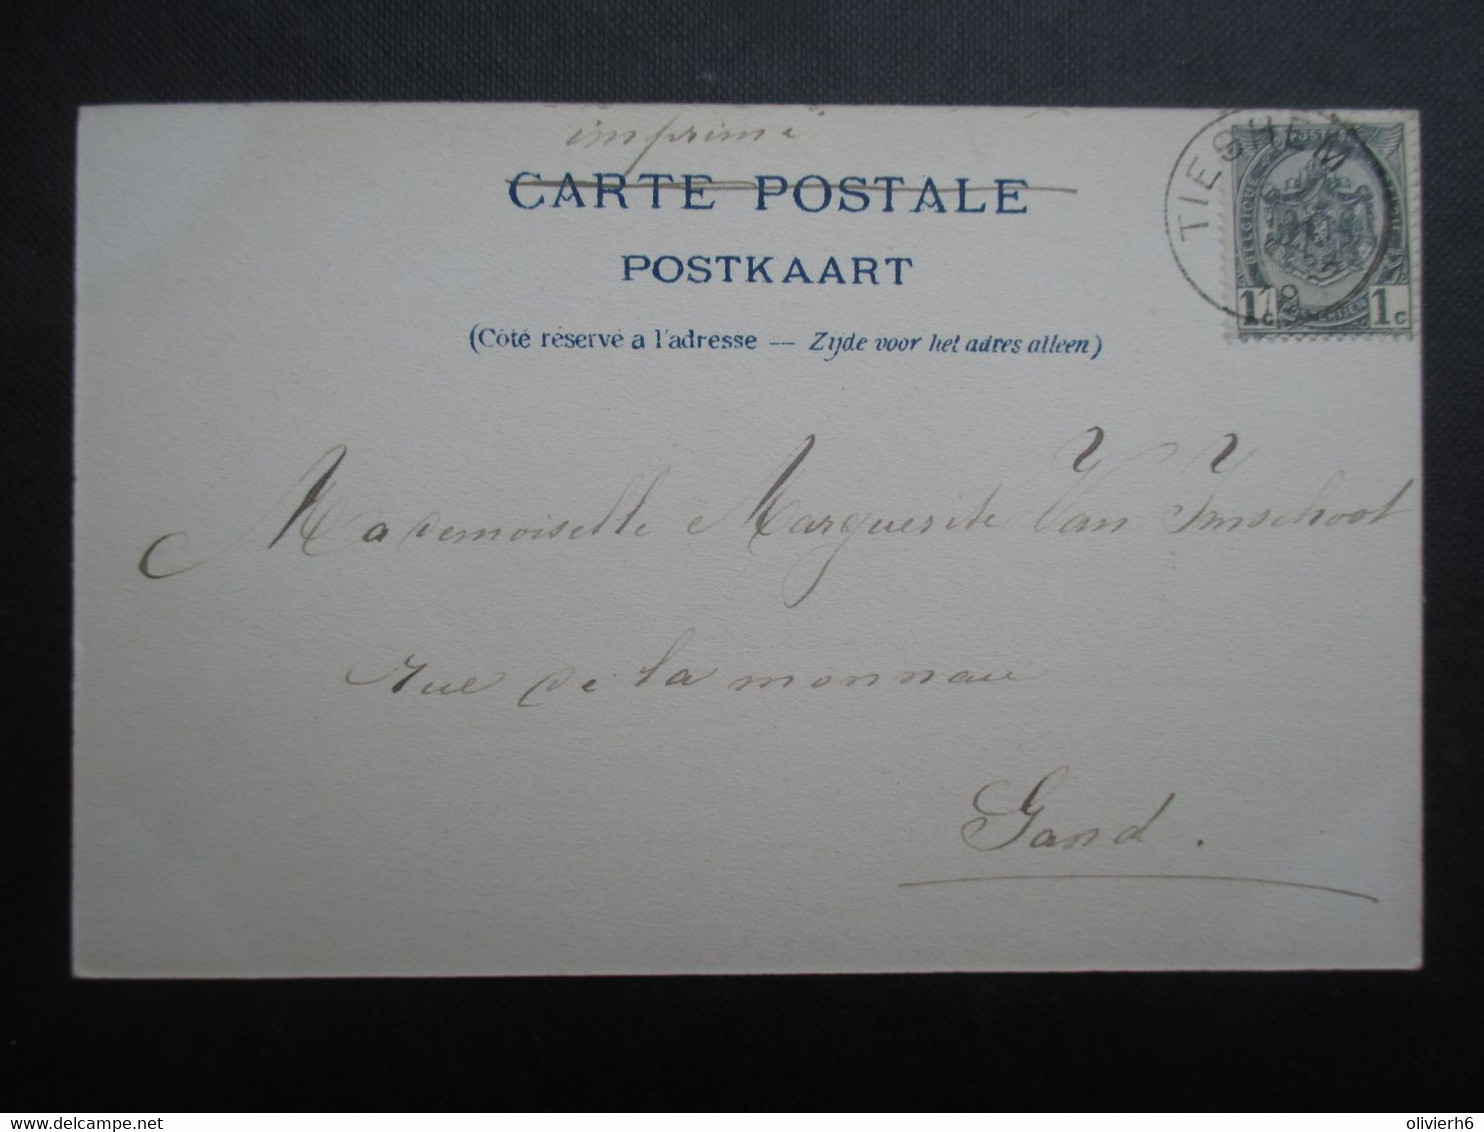 imprimé
CARTE POSTALE
POSTKAART
(Côté réservé a l'adresse — Zijde voor het adres alleen)
TIEGHEM
1c 1c
Mademoiselle Marguerite Van Imschoot
rue de la monnaie
Gand.
delcampe.net
olivierh6